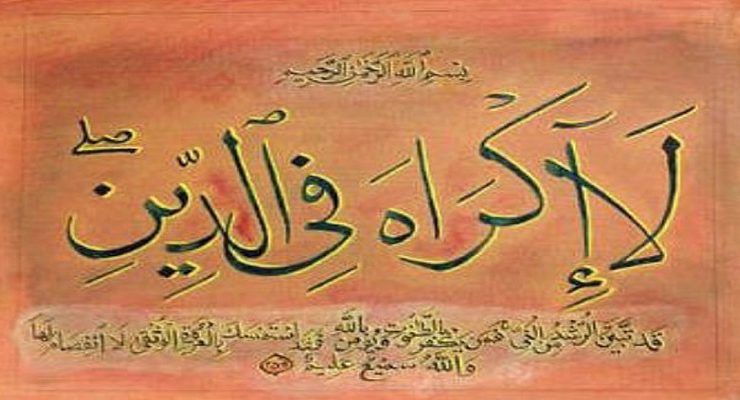 بِسْمِ ٱللَّهِ ٱلرَّحْمَٰنِ ٱلرَّحِيمِ
لَآ إِكْرَاهَ فِي ٱلدِّينِ ۖ
قَد تَّبَيَّنَ ٱلرُّشْدُ مِنَ ٱلْغَيِّ فَمَن يَكْفُرْ بِٱلطَّٰغُوتِ وَيُؤْمِنۢ بِٱللَّهِ فَقَدِ ٱسْتَمْسَكَ بِٱلْعُرْوَةِ ٱلْوُثْقَىٰ لَا ٱنفِصَامَ لَهَا
وَٱللَّهُ سَمِيعٌ عَلِيمٌ ٢٥٦